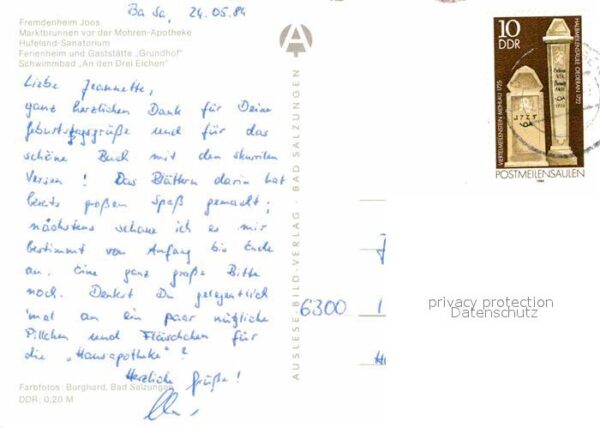 Ba Sa, 24.05.84
Fremdenheim Joos
Marktbrunnen vor der Mohren-Apotheke
Hufeland-Sanatorium
Ferienheim und Gaststätte „Grundhof"
Schwimmbad „An den Drei Eichen"
Liebe Jeannette,
ganz herzlichen Dank für Deine
Geburtstagsgrüße und für das
schöne Buch mit den skurrilen
Versen! Das Blättern darin hat
bereits großen Spaß gemacht;
nächstens schaue ich es mir
bestimmt von Anfang bis Ende
an. Eine ganz große Bitte
noch. Denkst Du gelegentlich
'mal an ein paar nützliche
Pillchen und Fläschchen für
die „Hausapotheke"?
Herzliche Grüße!
Farbfotos: Burghard, Bad Salzungen
DDR: 0,20 M
AUSLESE-BILD-VERLAG · BAD SALZUNGEN
A
10
DDR
VIERTELMEILENSTEIN MÜHLAU 1725
HALBMEILENSÄULE OEDERAN 1722
POSTMEILENSÄULEN
1984
6300
privacy protection
Datenschutz